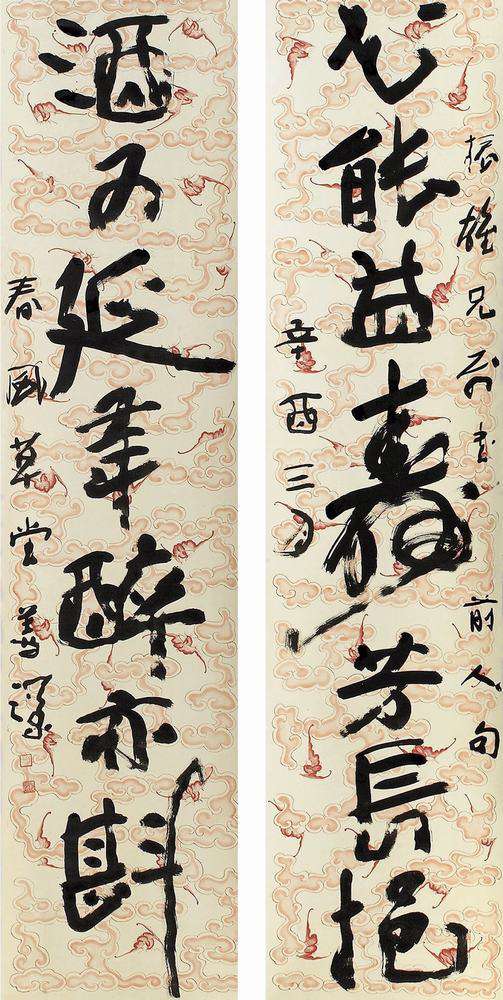 振雄兄 前人句
花能益壽芳長挹
辛酉三月
酒为延年醉亦斟
春風草堂